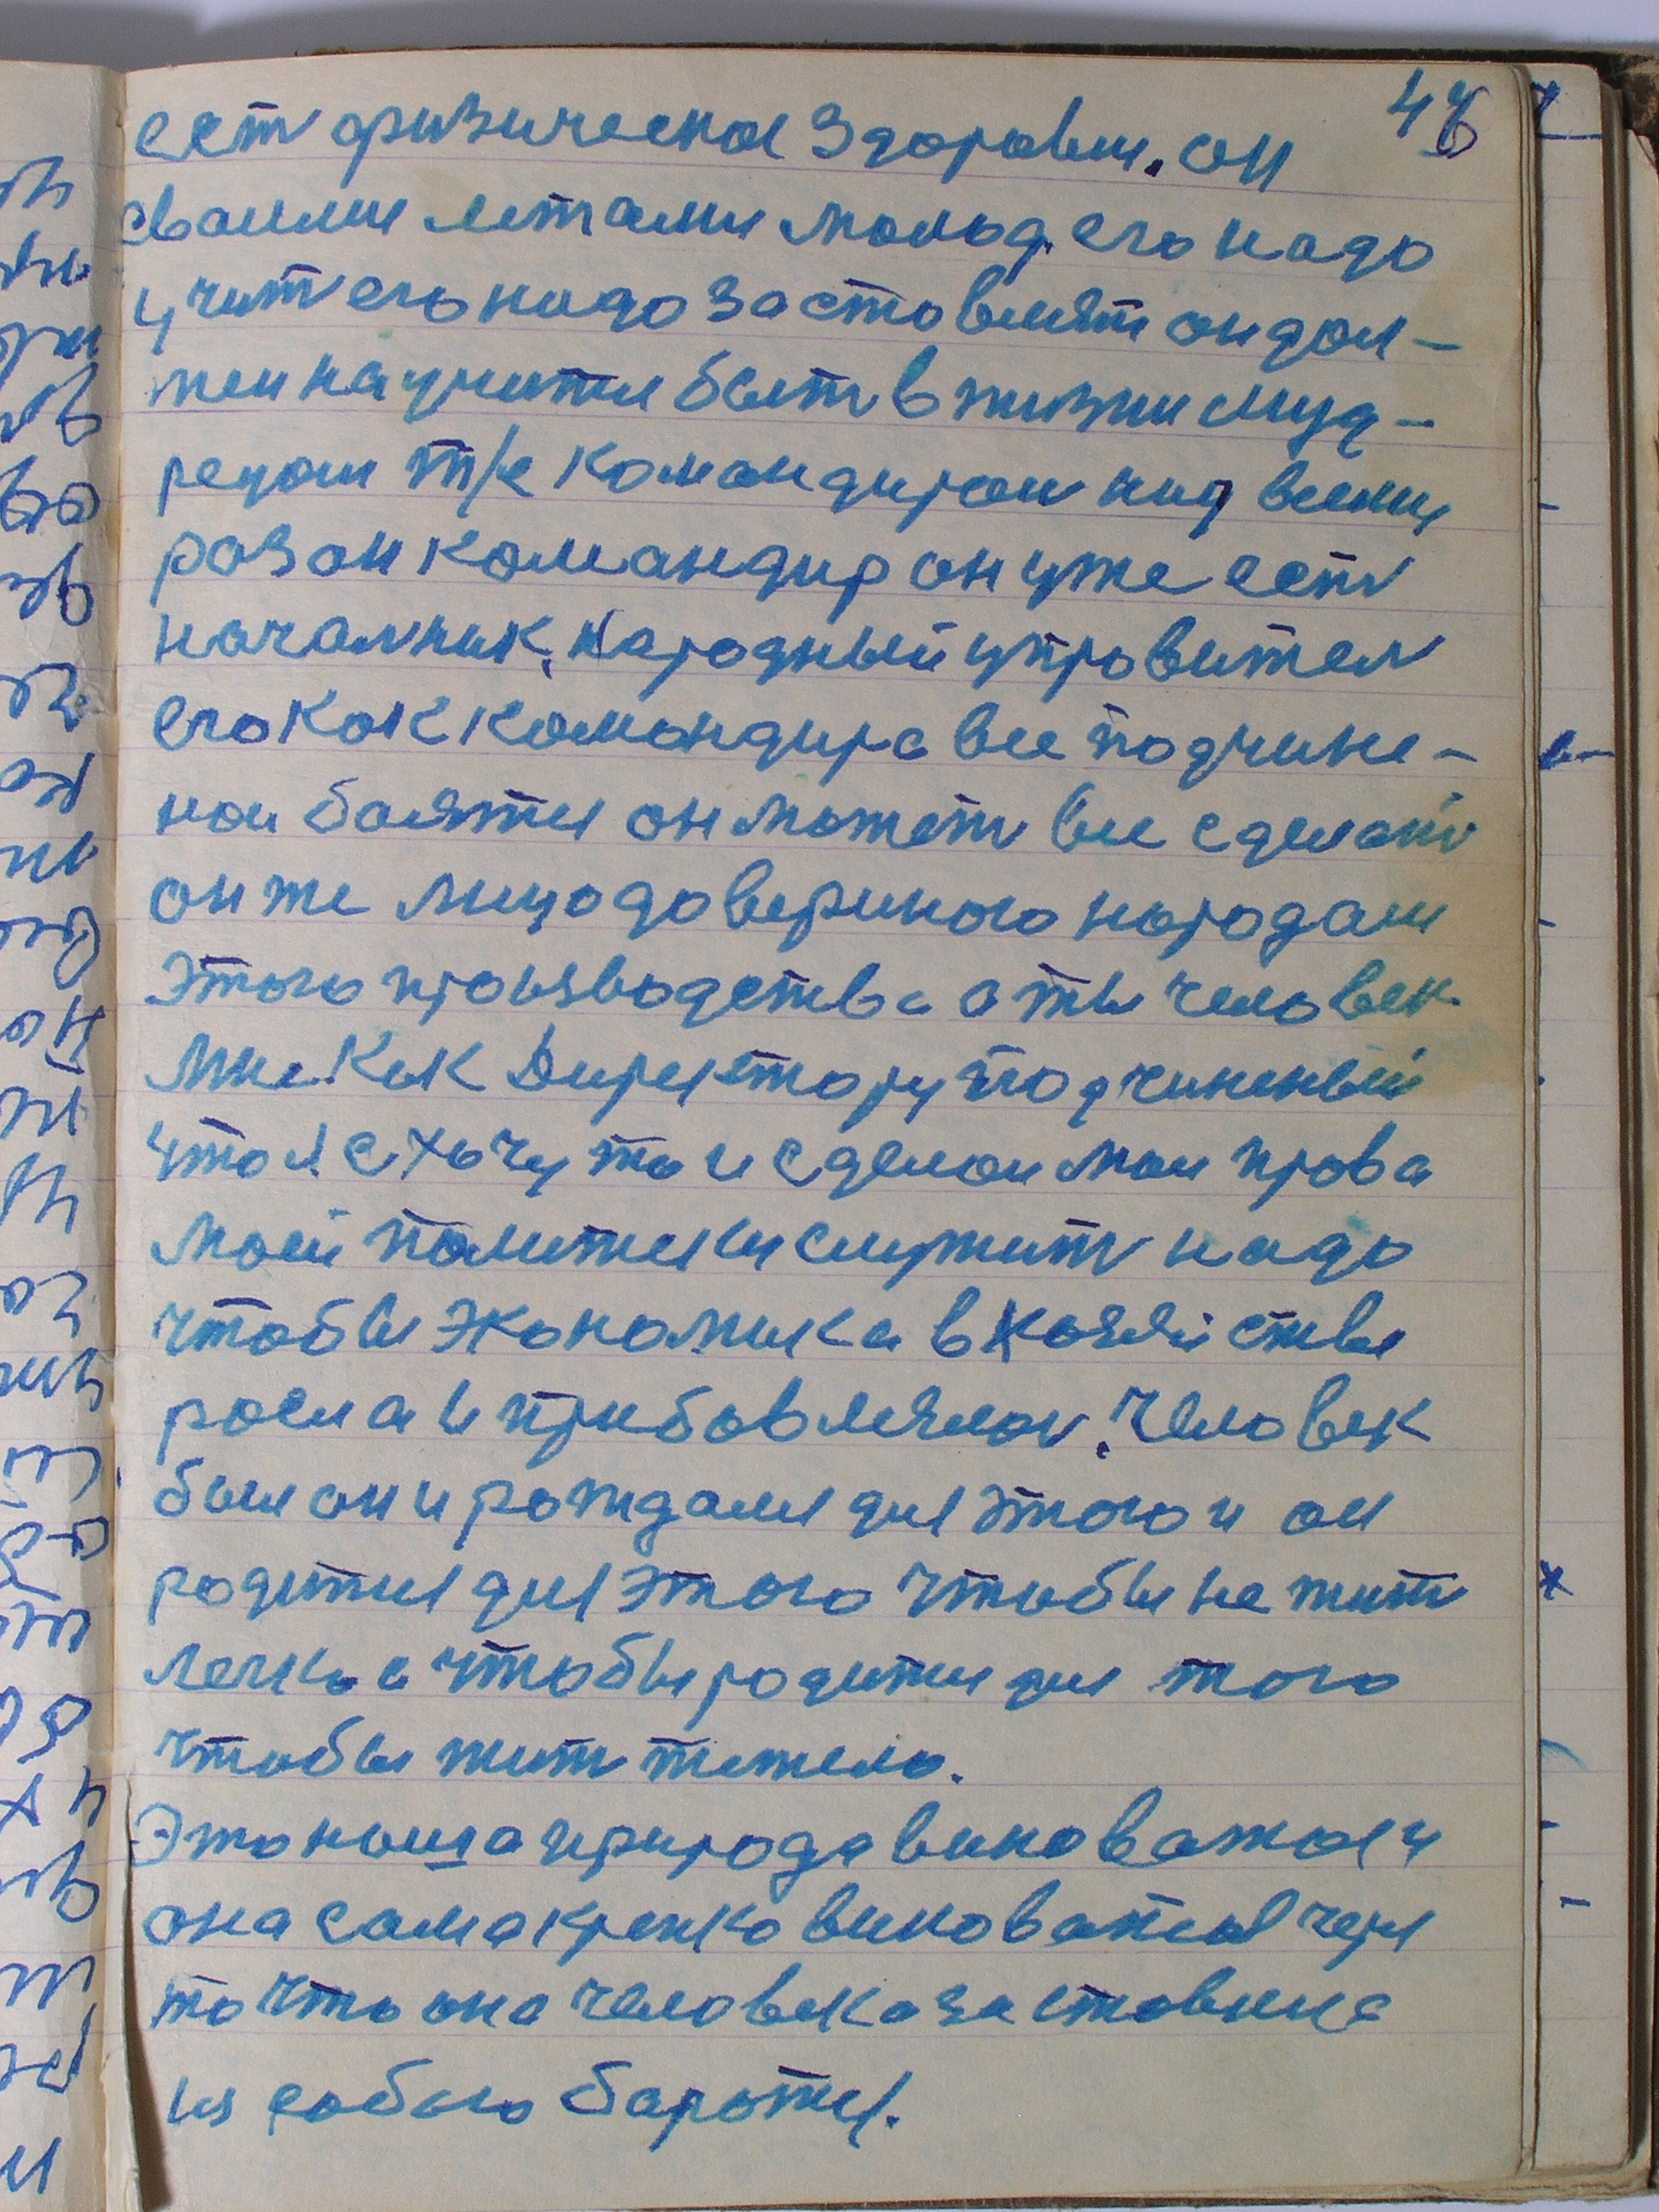 46
ест физическое здоровье. он
своими летами молод его надо
учит его надо заставлят он дол-
жен научится быт в жизни муд-
рецом т/е командиром над всеми
роз он командир он уже есть
началник. Народный управител
его как командира все подчине-
ном боятся он может все сделат
он же лицо доверимого народам
этого производства а ты человек
мне как Директору подчиненный
что я схочу то и сделаю мои права
моей политеки служит надо
чтобы экономика в хозяйстве
росла и прибовлялас. Человек
был он и рождался для этого и он
родится для этого чтобы не жит
легко а чтобы родится для того
чтобы жит тяжело.
Это наша природа виноватая и
она сама крепко виноватая чере
то что она человека заставила
из собою баротся.